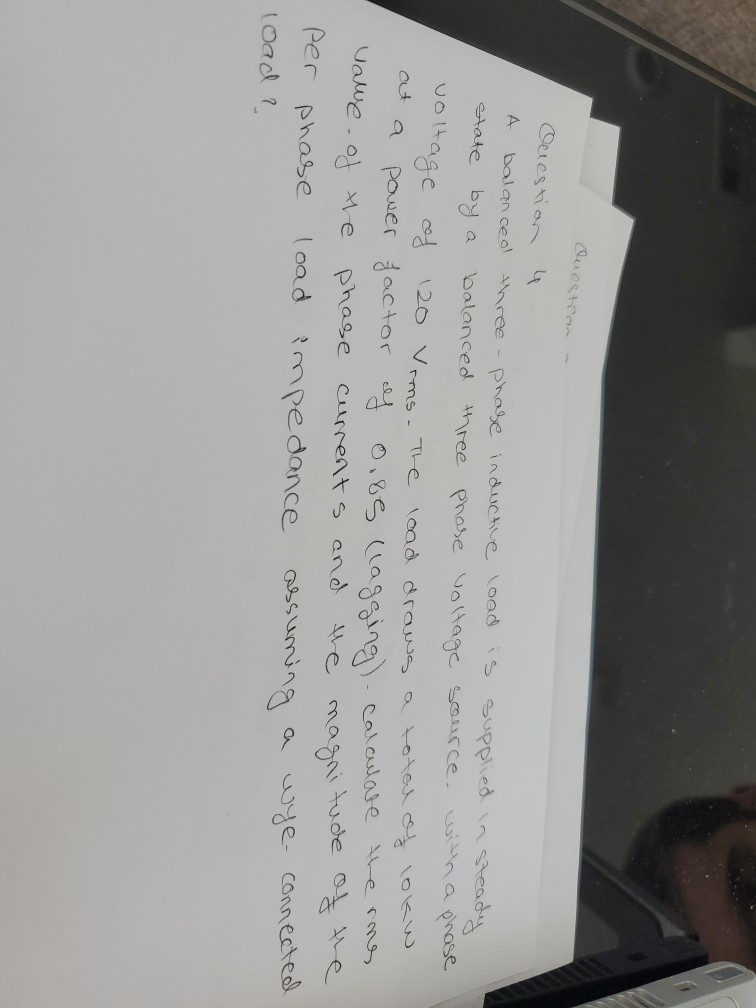 Question
Question 4
A balanced three-phase inductive load is supplied in steady
state by a balanced three phase voltage source. with a phase
voltage of 120 Vrms. The load draws a total of 10kW
at a power factor of 0.85 (lagging). calculate the rms
value of the phase currents and the magnitude of the
Per phase load impedance assuming a wye-connected
load?